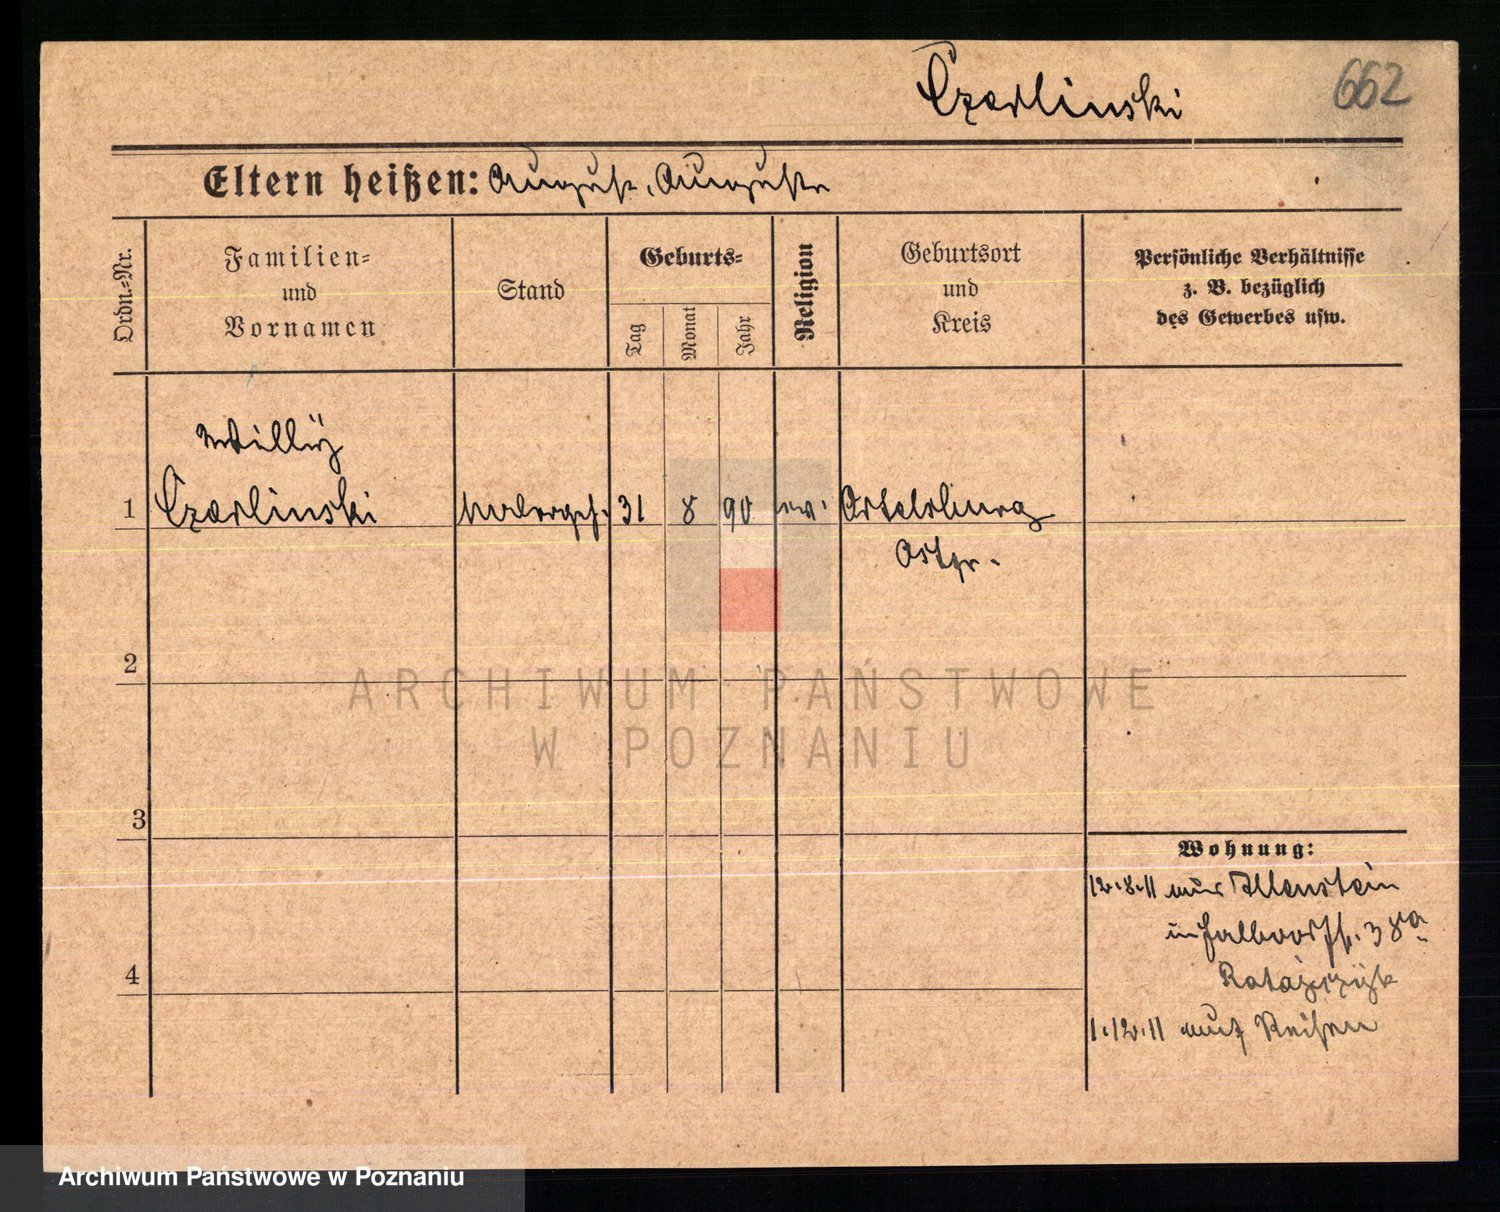 Czarlinski
662
Eltern heißen: August, Auguste
Ordn.-Nr.
Familien-
und
Vornamen
Stand
Geburts-
Tag
Monat
Jahr
Religion
Geburtsort
und
Kreis
Persönliche Verhältnisse
z. B. bezüglich
des Gewerbes usw.
Willÿ
1 Czarlinski Malergeh. 31 8 90 ev. Ortelsburg
Ostpr.
2
ARCHIWUM PAŃSTWOWE
W POZNANIU
3
Wohnung:
12.8.11 aus Allenstein
in 38a
Ratajczyk
4
1.12.11 auf Reisen
Archiwum Państwowe w Poznaniu